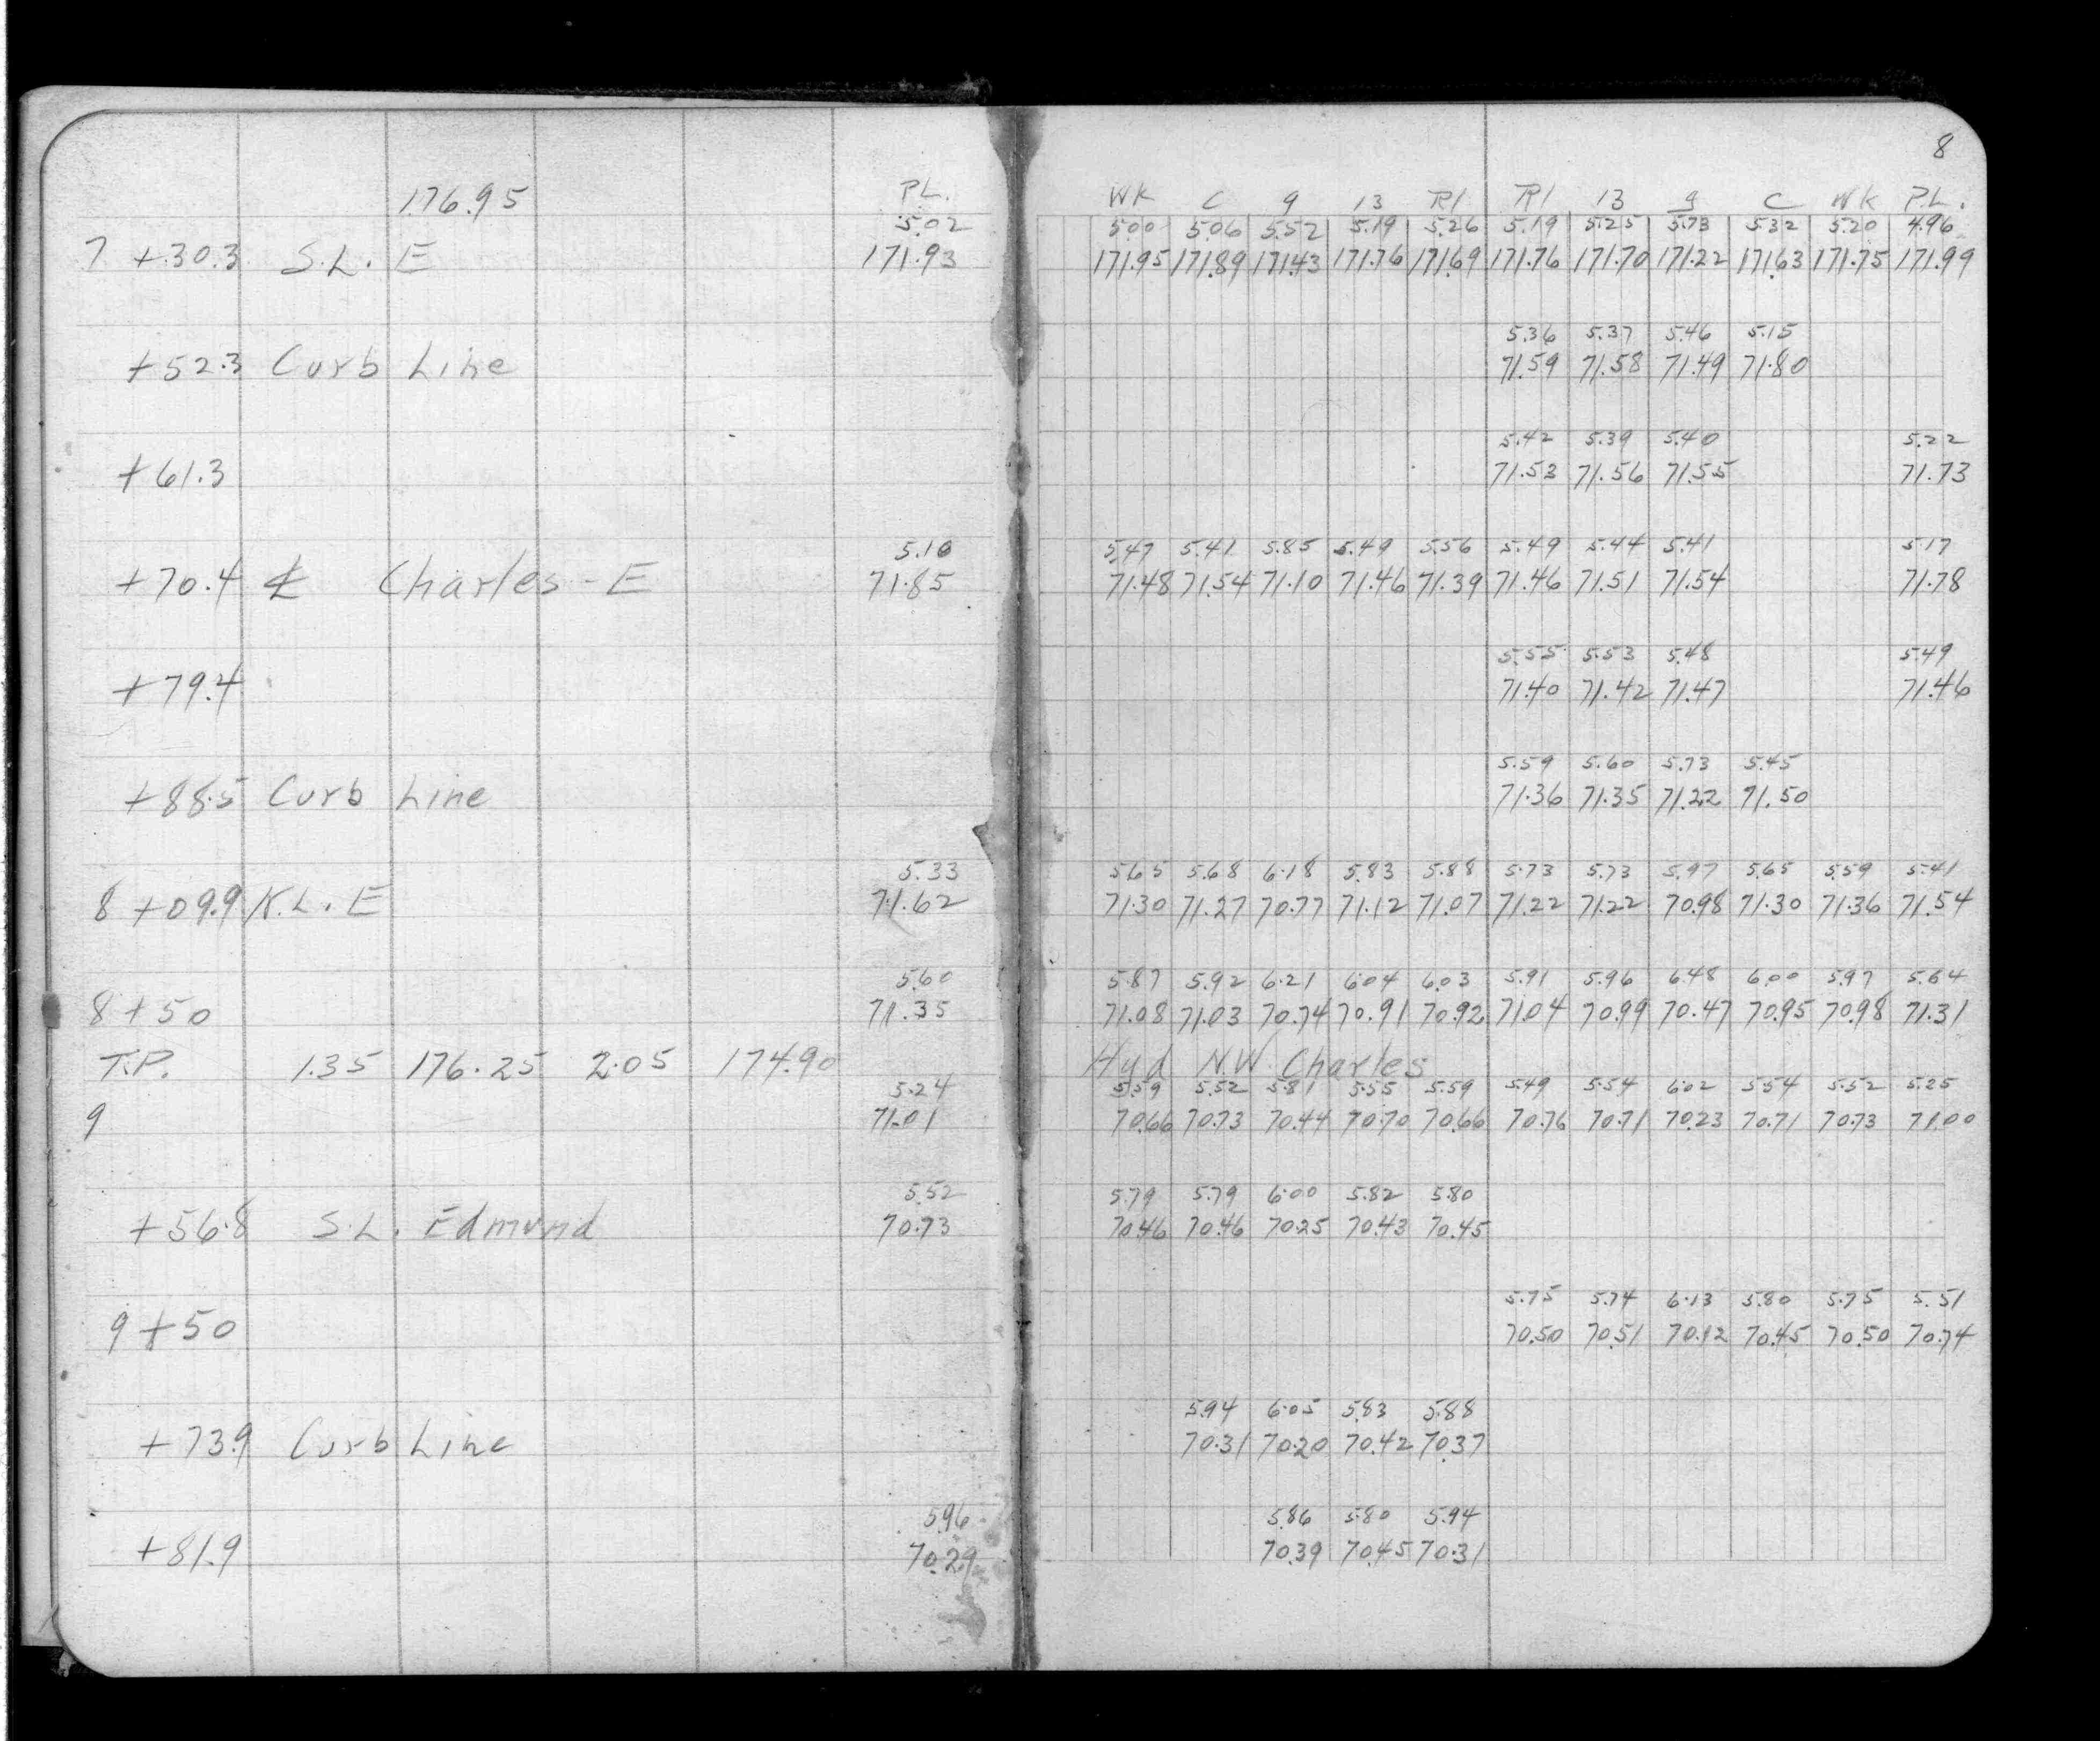 8
176.95 P.L. Wk C 9 13 Rl Rl 13 9 C Wk P.L.
5.02 5.00 5.06 5.52 5.19 5.26 5.19 5.25 5.73 5.32 5.20 4.96
7 +30.3 S.L. E 171.93 171.95 171.89 171.43 171.76 171.69 171.76 171.70 171.22 171.63 171.75 171.99
5.36 5.37 5.46 5.15
+52.3 Curb Line 71.59 71.58 71.49 71.80
5.42 5.39 5.40 5.22
+61.3 71.53 71.56 71.55 71.73
5.10 5.47 5.41 5.85 5.49 5.56 5.49 5.44 5.41 5.17
+70.4 ℄ Charles - E 71.85 71.48 71.54 71.10 71.46 71.39 71.46 71.51 71.54 71.78
5.55 5.53 5.48 5.49
+79.4 71.40 71.42 71.47 71.46
5.59 5.60 5.73 5.45
+88.5 Curb Line 71.36 71.35 71.22 71.50
5.33 5.65 5.68 6.18 5.83 5.88 5.73 5.73 5.97 5.65 5.59 5.41
8 +09.9 N.L. E 71.62 71.30 71.27 70.77 71.12 71.07 71.22 71.22 70.98 71.30 71.36 71.54
5.60 5.87 5.92 6.21 6.04 6.03 5.91 5.96 6.48 6.00 5.97 5.64
8 +50 71.35 71.08 71.03 70.74 70.91 70.92 71.04 70.99 70.47 70.95 70.98 71.31
T.P. 1.35 176.25 2.05 174.90 Hyd N.W. Charles
5.24 5.59 5.52 5.81 5.55 5.59 5.49 5.54 6.02 5.54 5.52 5.25
9 71.01 70.66 70.73 70.44 70.70 70.66 70.76 70.71 70.23 70.71 70.73 71.00
5.52 5.79 5.79 6.00 5.82 5.80
+56.8 S.L. Edmund 70.73 70.46 70.46 70.25 70.43 70.45
5.75 5.74 6.13 5.80 5.75 5.51
9 +50 70.50 70.51 70.12 70.45 70.50 70.74
5.94 6.05 5.83 5.88
+73.9 Curb Line 70.31 70.20 70.42 70.37
5.96 5.86 5.80 5.94
+81.9 70.29 70.39 70.45 70.31